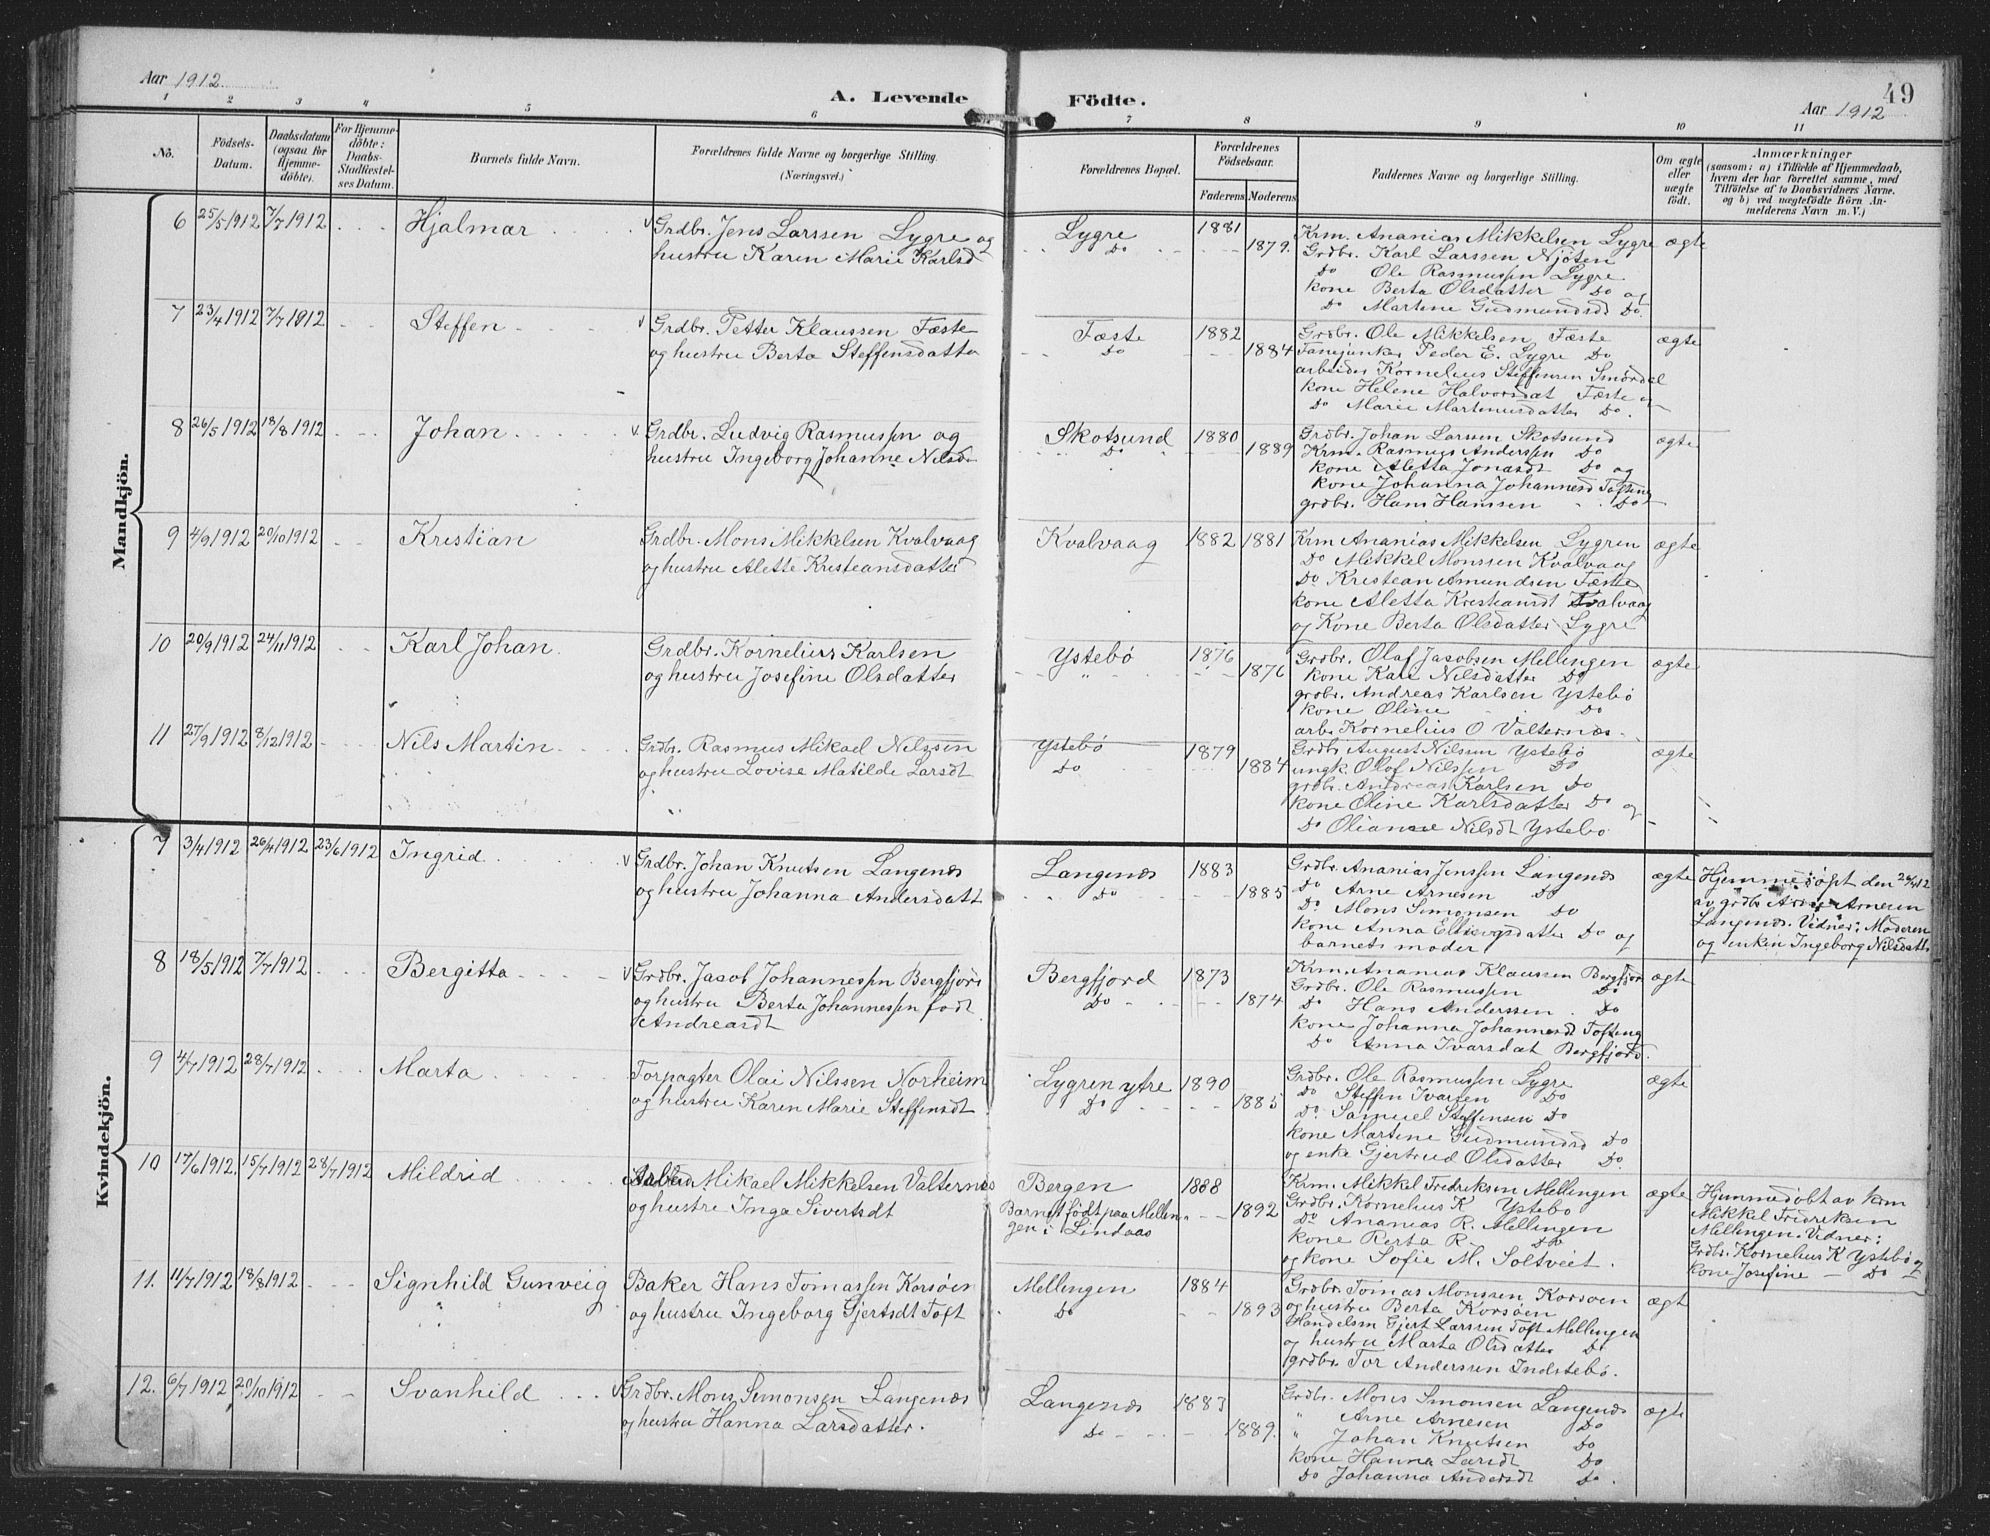 49
Aar 1912
A. Levende Födte.
Aar 1912
1 2 3 4 5 6 7 8 9 10 11
No.
Födsels-
Datum.
Daabsdatum
(ogsaa for
Hjemme-
döbte).
For Hjemme-
döbte:
Daabs-
Stadfæstel-
ses Datum.
Barnets fulde Navn.
Forældrenes fulde Navne og borgerlige Stilling.
(Næringsvei.)
Forældrenes Bopæl.
Forældrenes
Födselsaar.
Faderens Moderens
Faddernes Navne og borgerlige Stilling.
Om ægte
eller
uægte
födt.
Anmærkninger
(saasom: a) i Tilfælde af Hjemmedaab,
hvem der har forrettet samme, med
Tilföielse af to Daabsvidners Navne.
og b) ved uægtefödte Börn An-
melderens Navn m. V.)
Mandkjön.
6 25/5 1912 7/7 1912 Hjalmar
Grdbr. Jens Larssen Lygre og
hustru Karen Marie Karlsd
Lygre
Do
1881
1879.
Krm. Ananias Mikkelsen Lygre
Grdbr. Karl Larssen Njöten
Do Ole Rasmussen Lygre
kone Berta Olsdatter Do og
Do Martene Gudmundsd Do
ægte
7 23/4 1912 7/7 1912 Steffen
Grdbr. Petter Klaussen Fæste
og hustru Berta Steffensdatter
Fæste
Do
1882
1884
Grdbr. Ole Mikkelsen Fæste
Fanejunker Peder E. Lygre Do
arbeider Kornelius Steffensen Smördal
kone Helene Halvorsdat Fæste
Do Marie Martinusdatter Do.
ægte
8 26/5 1912 18/8 1912 Johan
Grdbr. Ludvig Rasmussen og
hustru Ingeborg Johanne Nilsd
Skotsund
Do
1880
1889
Grdbr. Johan Larssen Skotsund
Krm. Rasmus Anderssen Do
kone Aletta Jonasdt Do og
kone Johanna Johannesd Tofting
grdbr. Hans Hanssen Do
ægte
9 4/9 1912 20/10 1912 Kristian
Grdbr. Mons Mikkelsen Kvalvaag
og hustru Alette Kristeansdatter
Kvalvaag
1882 1881
Krm Ananias Mikkelsen Lygren
Do Mikkel Monssen Kvalvaag
Do Kristean Amundsen Fæste
kone Aletta Kristeansdt Kvalvaag
og Kone Berta Olsdatter Lygre
ægte
10 20/9 1912 24/11 1912 Karl Johan
Grdbr. Kornelius Karlsen
og hustru Josefine Olsdatter
Ystebö
1876
1876
Grdbr. Olaf Jacobsen Mellingen
kone Kari Nilsdatter Do
grdbr. Andreas Karlsen Ystebö
kone Oline Do
arb. Kornelius O Valternæs
ægte
11 27/9 1912 8/12 1912 Nils Martin
Grdbr. Rasmus Mikael Nilssen
og hustru Lovise Matilde Larsdt
Ystebö
Do
1879
1884
Grdbr August Nilssen Ystebö
ungk. Olaf Nilssen Do
grdbr. Andreas Karlsen Do
kone Oline Karlsdatter Do og
Do Olianne Nilsdt Ystebö
ægte
Kvindekjön.
7 3/4 1912 26/4 1912 23/6 1912 Ingrid
Grdbr. Johan Knutsen Langenæs
og hustru Johanna Andersdatt
Langenæs
Do
1883
1885
Grdbr. Ananias Jenssen Langenæs
Do Arne Arnesen Do
Do Mons Simonsen Do
kone Anna Do og
barnets moder
ægte
Hjemmedöpt den 26/4 12
av grdbr Arne Arnesen
Langenæs. Vidner: Moderen
og enken Ingeborg Nilsdatt
8 18/5 1912 7/7 1912 Bergitta
Grdbr. Jacob Johannessen Bergfjord
og hustru Berta Johannessen födt
Andreasdt
Bergfjord
Do
1873
1874
Krm. Ananias Klaussen Bergfjor
Grdbr. Ole Rasmussen Do
Do Hans Anderssen Do
kone Johanna Johannesd Tofting
Do Anna Ivarsdat Bergfjord.
ægte
9 4/7 1912 28/7 1912 Marta
Forpagter Olai Nilssen Norheim
og hustru Karen Marie Steffensdt
Lygren ytre
Do
1890
1885
Grdbr. Ole Rasmussen Lygre
Do Steffen Ivarsen Do
Do. Samuel Steffensen Do
kone Martine Gudmundsd Do
og enke Gjertrud Olsdatter Do.
ægte
10 17/6 1912. 15/7 1912 28/7 1912 Mildrid
Mikael Mikkelsen Valternæs
og hustru Inga Sivertsdt
Bergen
Barnet födt paa Mellin-
gen i Lindaas
1888
1892
Krm. Mikkel Fredriksen Mellingen
Grdbr. Kornelius K Ystebö
Do Ananias R. Mellingen
kone Berta R Do
og kone Sofie M. Soltveit.
ægte
Hjemmedöbt av krm
Mikkel Fridriksen
Mellingen. Vidner:
Grdbr. Kornelius K Ystebö og
kone Josefine — Do
11. 11/7 1912 18/8 1912 Signhild Gunveig
Baker Hans Tomassen Korsöen
og hustru Ingeborg Gjertsdt Toft
Mellingen
Do
1884
1893
Grdbr. Tomas Monssen Korsoen
og hustru Berta Korsöen
Handelsm Gjert Larssen Toft Mellingen
og hustru Marta Olsdatter Do
grdbr. Tor Anderssen Indstebö.
ægt
12. 6/7 1912 20/10 1912 Svanhild
Grdbr. Mons Simonsen Langenæs
og hustru Hanna Larsdatter.
Langenæs
Do
1883
1889.
Grdbr. Mons Simonsen Langenæs
" Arne Arnesen Do
" Johan Knutsen Do
kone Hanna Larsdt Do
Do Johanna Andersdt Do.
ægte